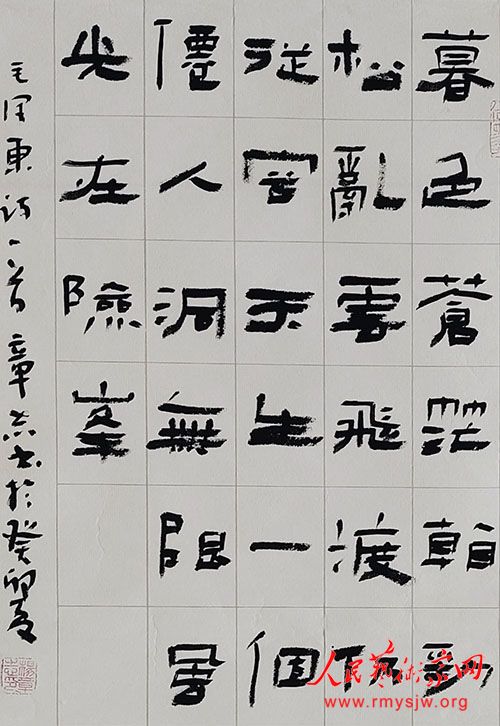 暮色蒼茫看勁
松亂雲飛渡仍
從容天生一個
僊人洞無限風
光在險峯
毛泽東诗一首章志书於癸卯夏
人民藝術家网
www.rmysjw.org